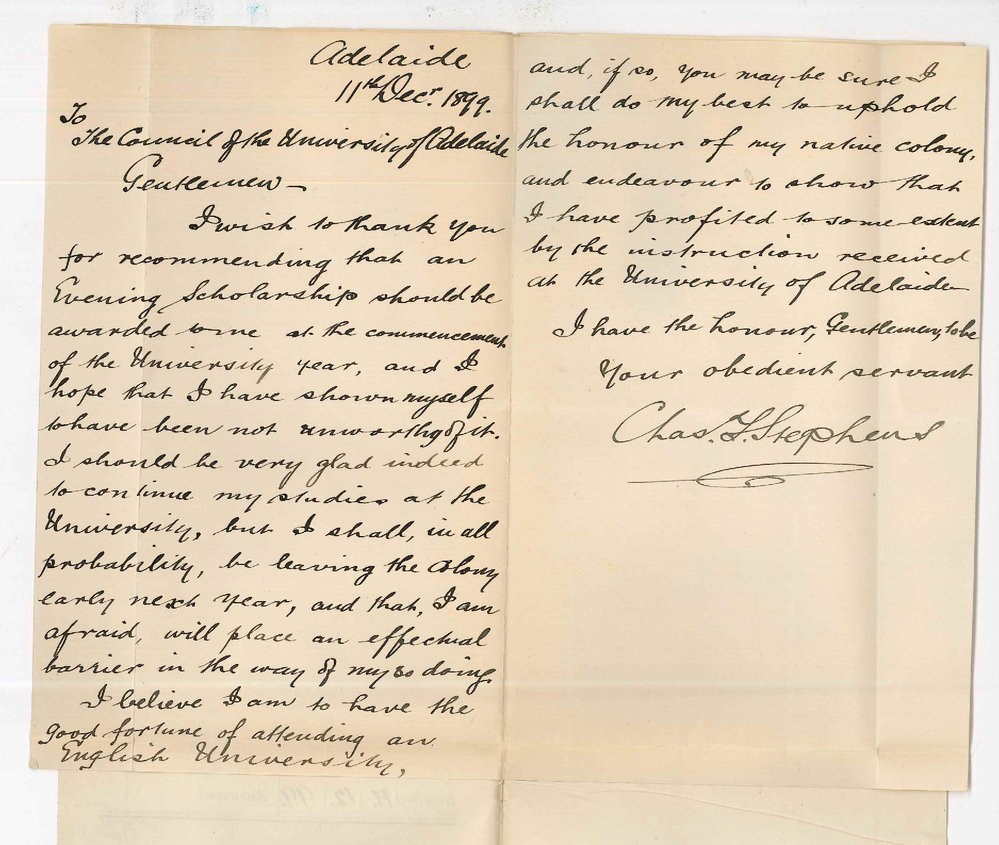 Adelaide
11th Decr. 1899.
To
The Council of the University of Adelaide
Gentlemen—
I wish to thank you
for recommending that an
Evening Scholarship should be
awarded to me at the commencement
of the University year, and I
hope that I have shown myself
to have been not unworthy of it.
I should be very glad indeed
to continue my studies at the
University, but I shall, in all
probability, be leaving the colony
early next year, and that, I am
afraid, will place an effectual
barrier in the way of my so doing.
I believe I am to have the
good fortune of attending an
English University,
and, if so, you may be sure I
shall do my best to uphold
the honour of my native colony,
and endeavour to show that
I have profited to some extent
by the instruction received
at the University of Adelaide—
I have the honour, Gentlemen, to be
Your obedient servant
Chas. F. Stephens